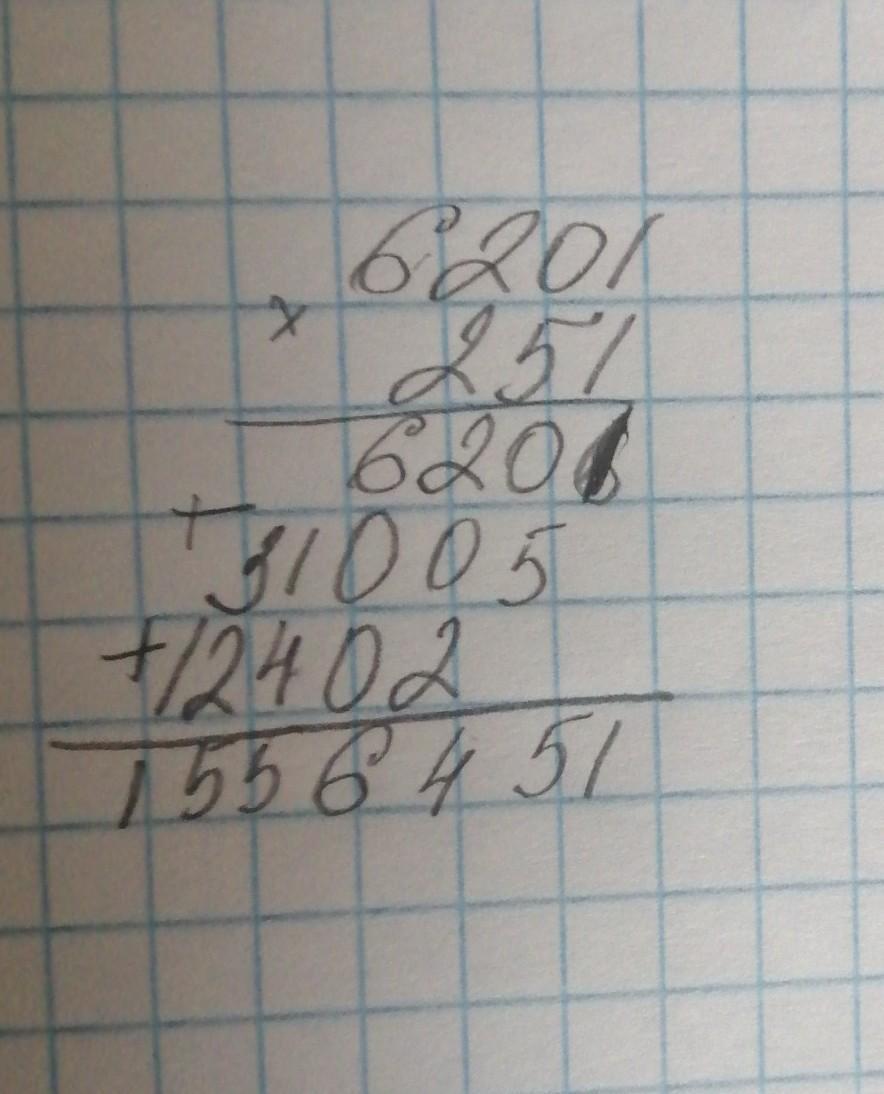 6201
× 251
6201
+ 31005
+ 12402
1556451